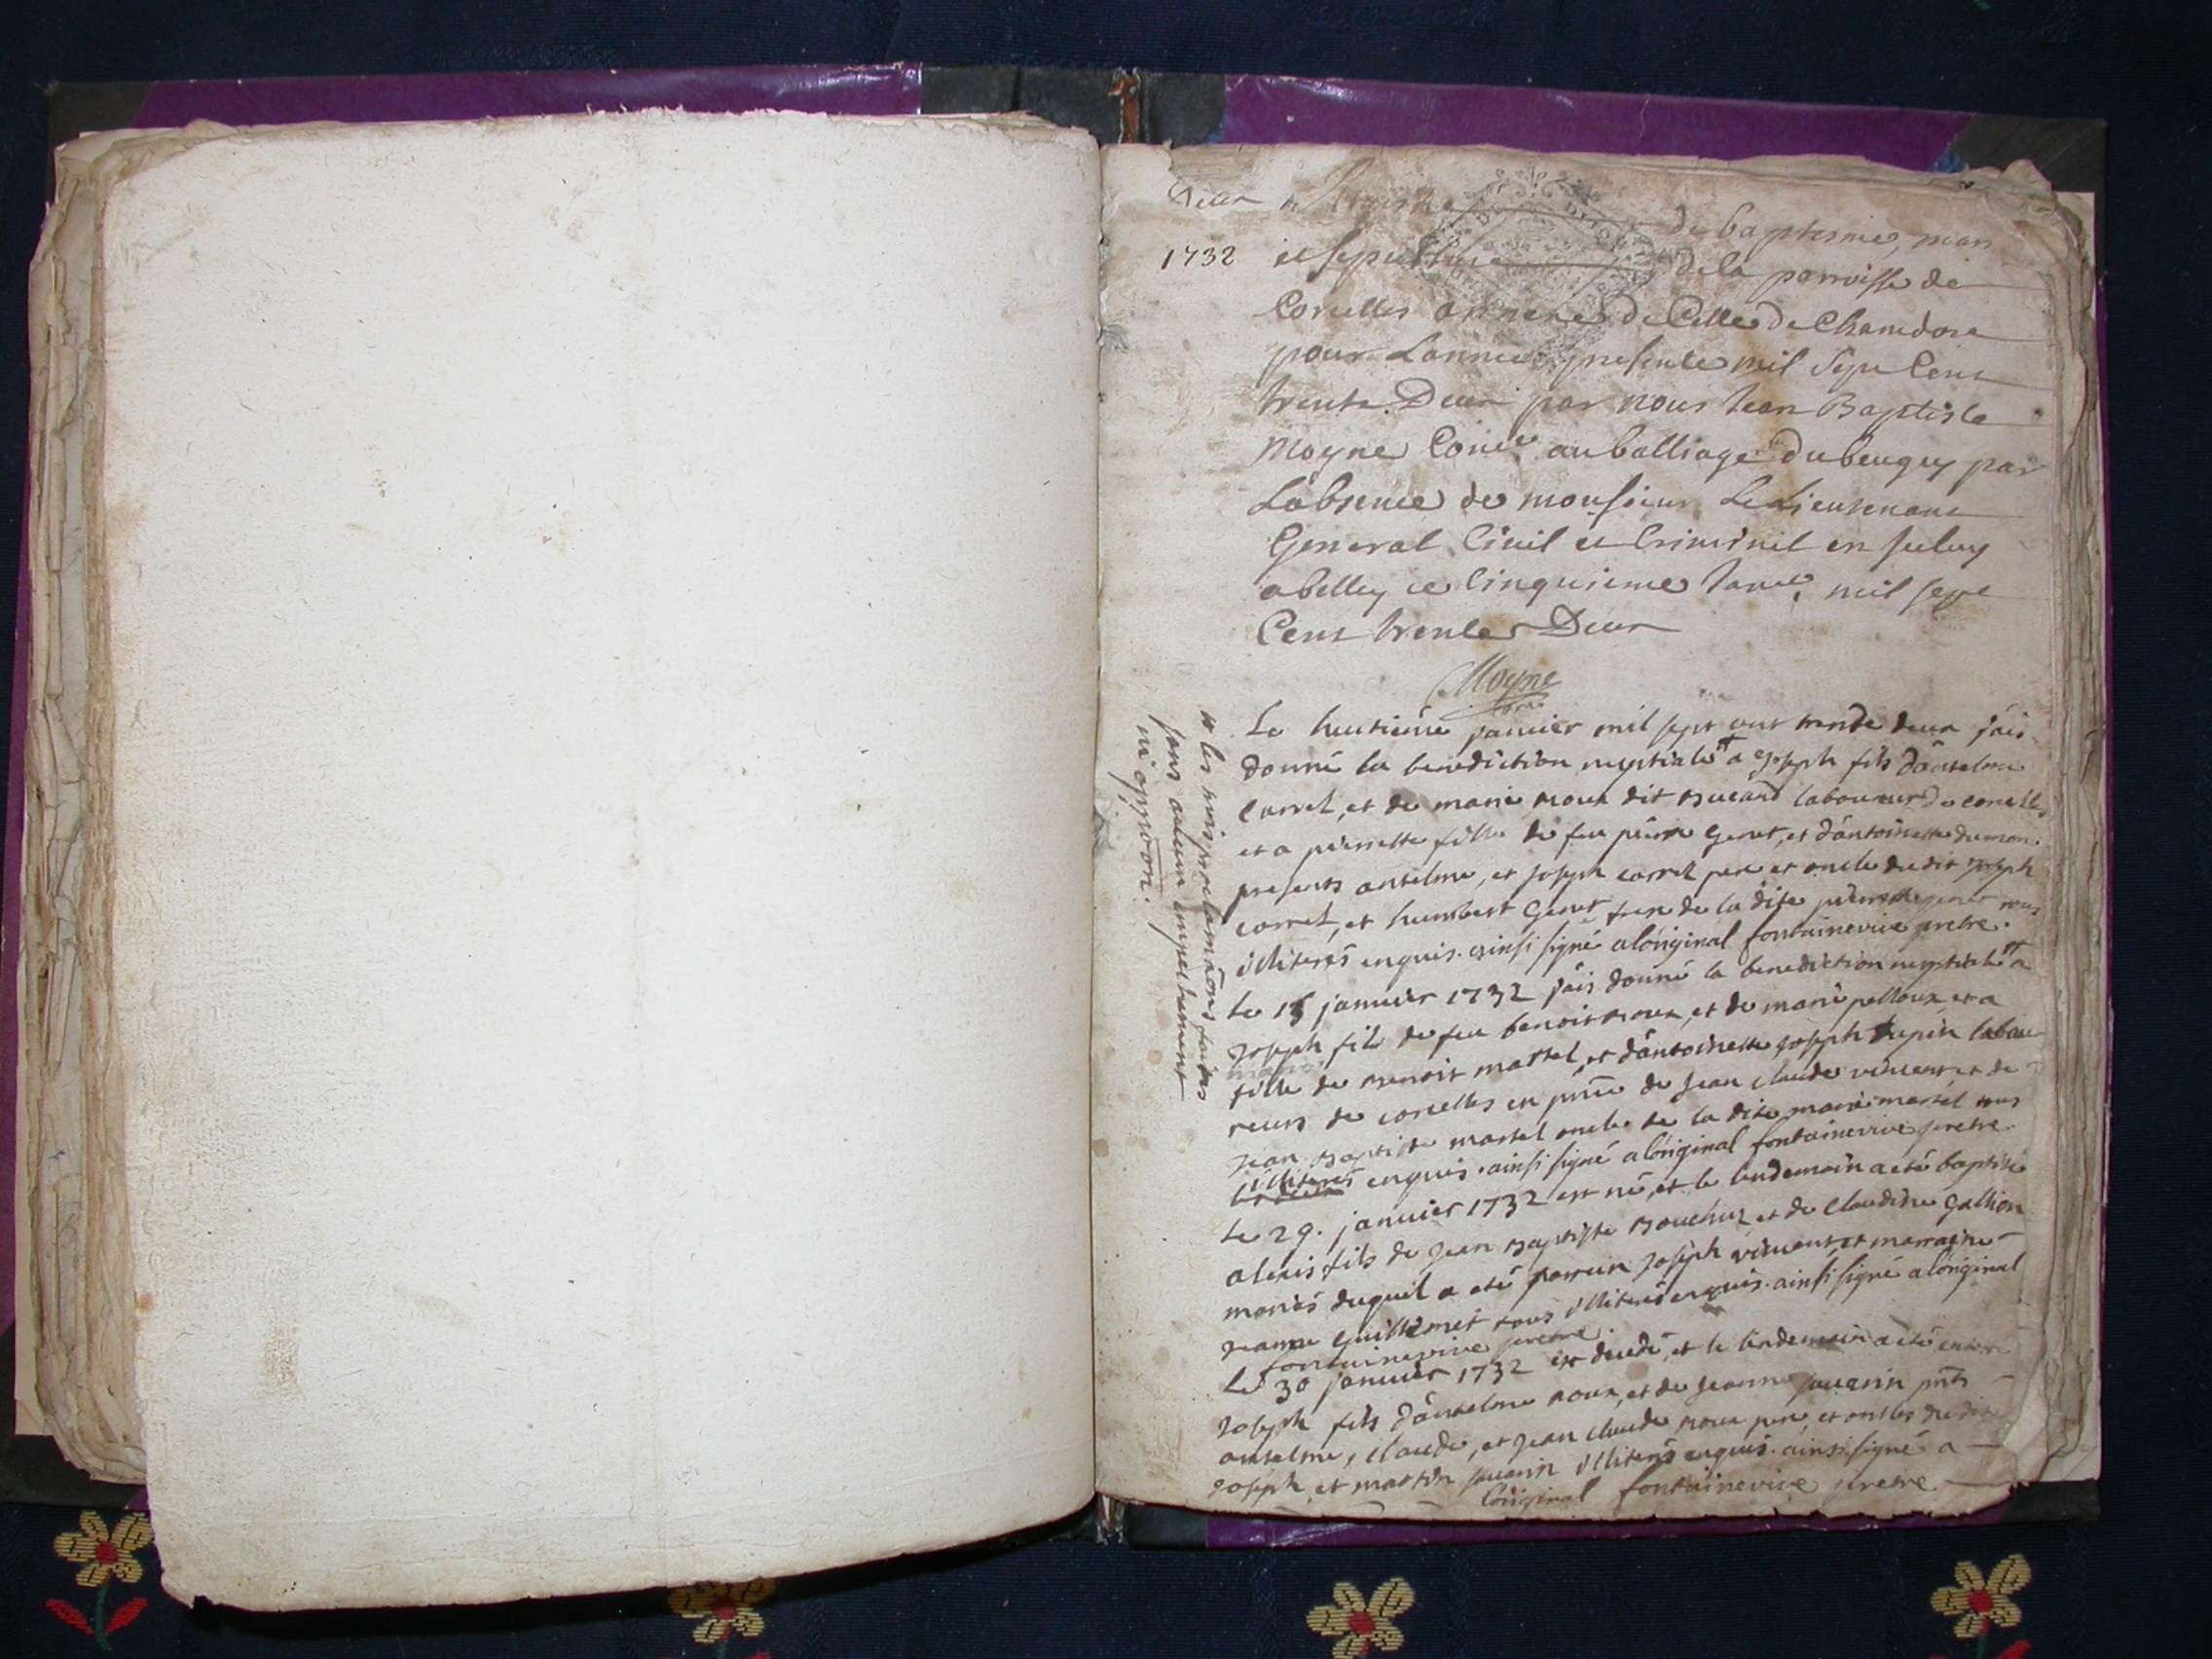 1732
de baptesme, mar
et sepulture de la parroisse de
Corcelles annexe de Celle de Chamdore
pour Lannee presente mil sept Cent
trente Deux par nous Jean Baptiste
Moyne Conser au balliage du beugey par
Labsence de monsieur Le Lieutenant
General Civil et Criminel en Iceluy
a belley ce Cinquieme Janvr mil sept
Cent trente Deux
Moyne
Le huitiéme janvier mil sept cent trente deux j'ais
donné la benediction nuptiale a joseph fils d'anselme
carrel, et de marie roux dit laboureur de corcelles
et a pierrette fille de feu pierre genet, et d'antoinette dumon
presents anselme, et joseph carrel pere et oncle du dit joseph
carrel, et humbert genet frere de la dite pierrette genet tous
illiterés enquis. ainsi signé a l'original fontainevive pretre.
Le 15 janvier 1732 j'ais donné la benediction nuptiale a
joseph fils de feu benoit roux, et de marie pelloux et a
fille de benoit martel, et d'antoinette joseph dupin labou-
reurs de corcelles en pnce de jean claude vincent et de
jean baptiste martel oncle de la dite marie martel tous
illiterés enquis. ainsi signé a l'original fontainevive pretre.
Le 29. janvier 1732 est né, et le lendemain a eté baptisé
alexis fils de jean baptiste bouchuz et de claudine gallion
mariés duquel a eté parrein joseph vincent et marraine
jeanne guillermet tous illiterés enquis. ainsi signé a l'original
fontainevive pretre.
Le 30 janvier 1732 est decedé, et le lendemain a eté enterré
joseph fils d'anselme roux, et de jeanne savarin pnts
anselme, claude, et jean claude roux pere et oncles du dit
joseph et martin savarin illiterés enquis. ainsi signé a
l'original fontainevive pretre
les trois proclamâons faites
sans aucun empechement
ni oppoôn.